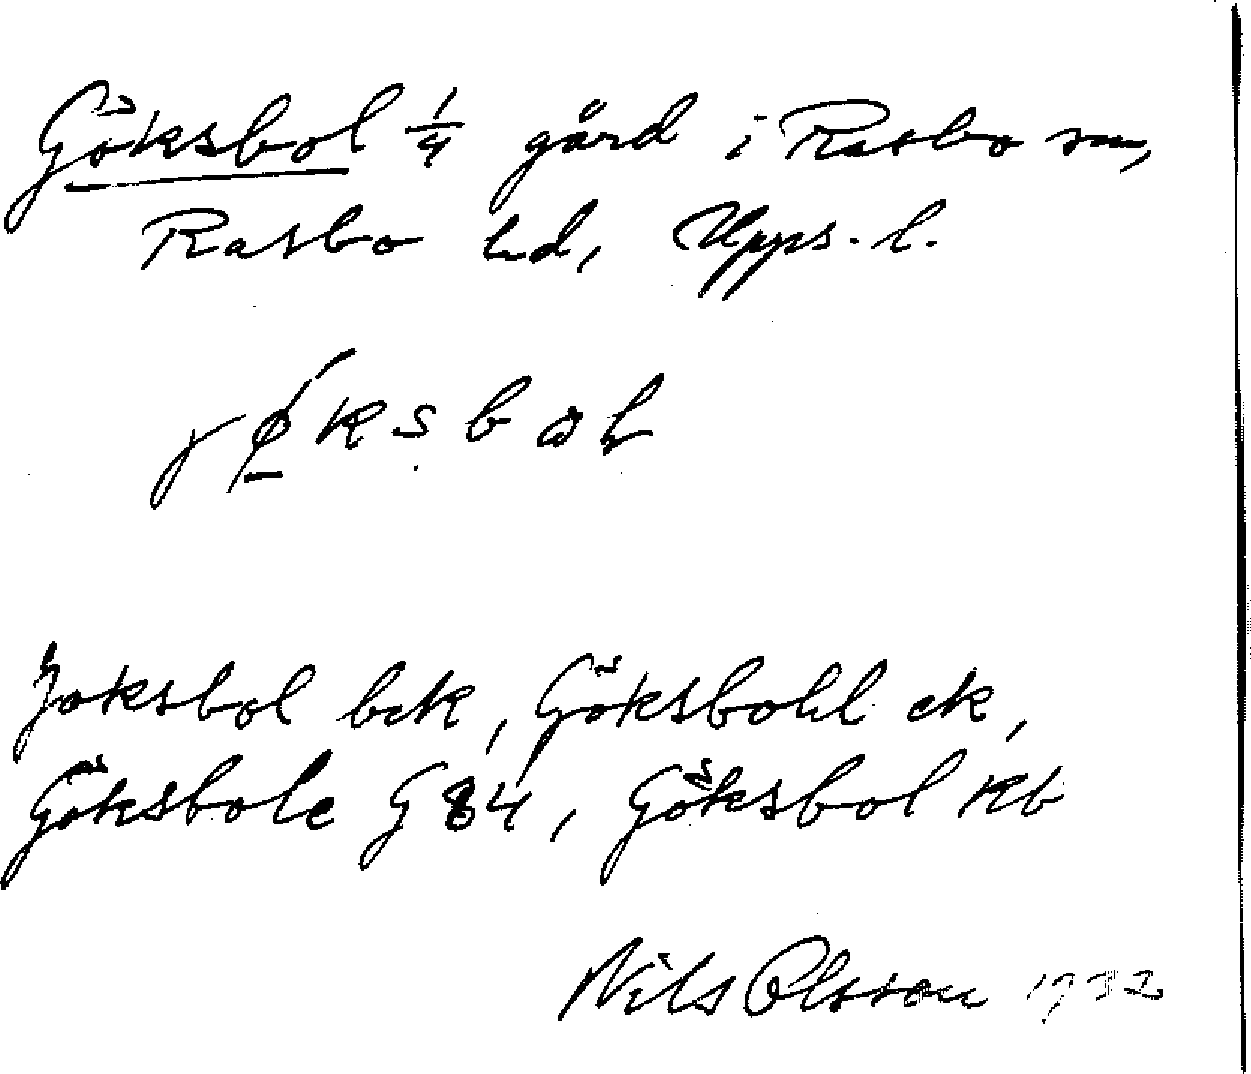 Göksbol 1/4 gård i Rasbo sn,
Rasbo hd, Upps. l.
Joksbol bck, Göksbohl ek,
Göksbole G 84, Göksbol kb
Nils Olsson 1932